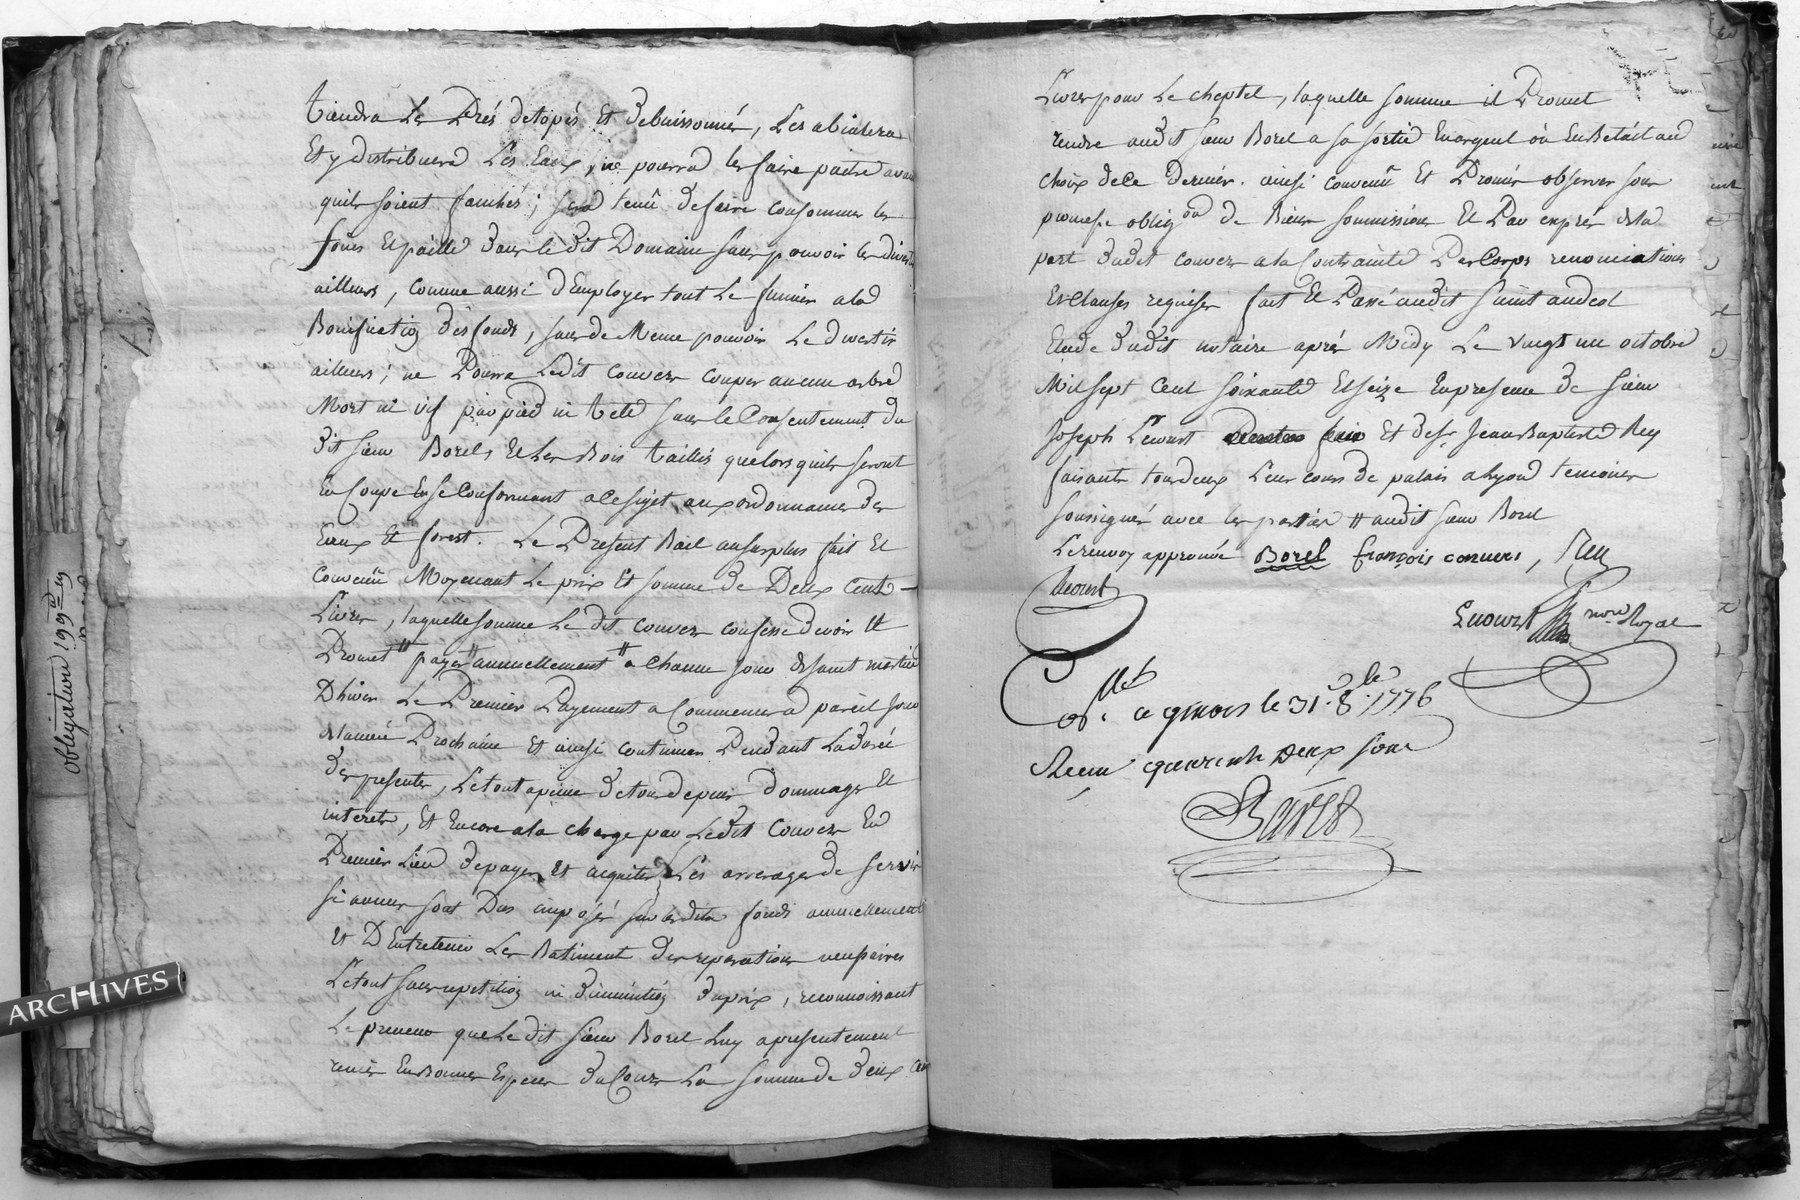 tiendra Les Prés detopés Et debuissonnés, Les abialera
Et y distribuera Les Eaux, ne pourra les faire paitre avan
quils soient fauchés; sera tenû de faire consommer les
foins Et paille dans le dit Domaine sans pouvoir les divertir
ailleurs, comme aussi d'Employer tout Le fumier a la
Bonification des fonds, sans de Meme pouvoir Le divertir
ailleurs; ne Pourra Ledit convers couper aucun arbre
Mort ni vif par pied ni tete sans le Consentement du
dit sieur Borel, Et Les Bois taillis que lors quils seront
En Coupe En se Conformant a Ce sujet aux ordonnances des
Eaux Et forest. Le Present Bail au surplus fait Et
convenû Moyenant Le prix Et somme de Deux Cent
Livres, laquelle somme Le dit convers confesse devoir Et
Promet payer annuellement a Chacun jour de saint martin
Dhiver Le Premier Payement a Commencer a pareil jour
de lannée Prochaine Et ainsi continuer Pendant La durée
des presentes, Le tout a peine de tous depens dommages Et
interets, Et Encore a la charge par Ledit Convers En
Premier Lieu de payer Et acquiter Les arrerages de servis
si aucuns sont Dus imposés sur lesdits fonds annuellement
Et D'Entretenir Les Batiments des reparations necessaires
Le tout sans repetition ni diminution du prix, reconnoissant
Le preneur que Le dit sieur Borel Luy a presentement
remis En Bonnes Especes du Cours La somme de deux cent
Livres pour Le cheptel, laquelle somme il Promet
rendre audit sieur Borel a sa sortie En argent où En Betail au
choix de Ce dernier. ainsi convenû Et Promis observer sous
promesse oblig.on de Biens soumission Et Par exprés de la
part dudit convers a la Contrainte Par Corps renonciations
Et Clauses requises fait Et Passé audit saint andeol
Etude dudit notaire aprés Midy Le vingt un octobre
Mil sept Cent soixante Et seize En presence de sieur
Joseph Lecourt Et de sr. Jean Baptiste Rey
faisants tous deux Leur cours de palais a Lyon temoins
soussignés avec les parties # audit sieur Borel
Le renvoy approuvée Borel françois convers, Rey
Lecourt
Lecourt nore Royal
Con.lé a givors le 31 8.bre 1776
Recu quarante Deux sous
obligation
ARCHIVES